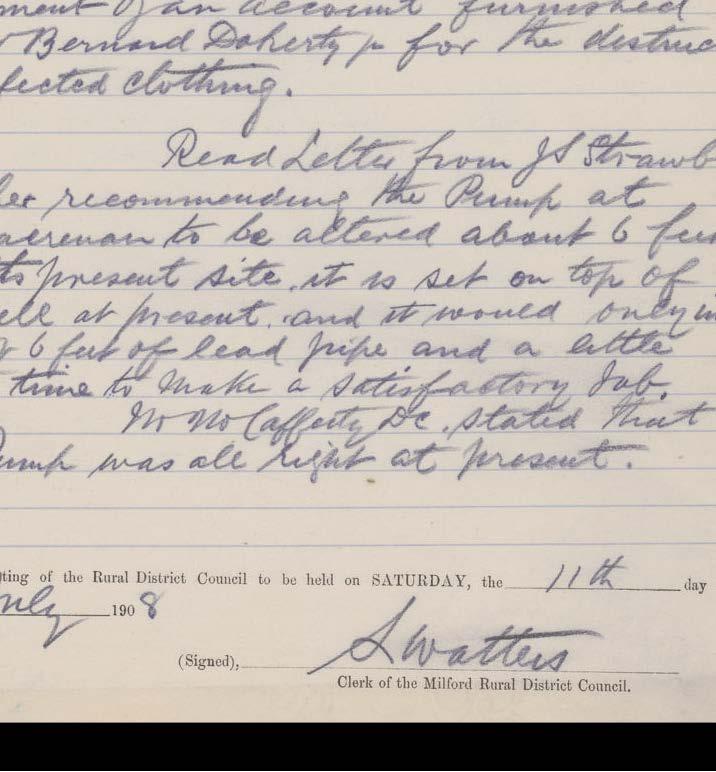 ment of an account furnished
Bernard Doherty jr for the destruc
fected clothing.
Read Letter from JS Strawb
ler recommending the Pump at
acrenan to be altered about 6 feet
its present site, it is set on top of
ell at present, and it would only
6 feet of lead pipe and a little
time to make a satisfactory Job.
Mr McCafferty DC, stated that
ump was all right at present.
ting of the Rural District Council to be held on SATURDAY, the 11th day
uly 1908
(Signed), S Watters
Clerk of the Milford Rural District Council.